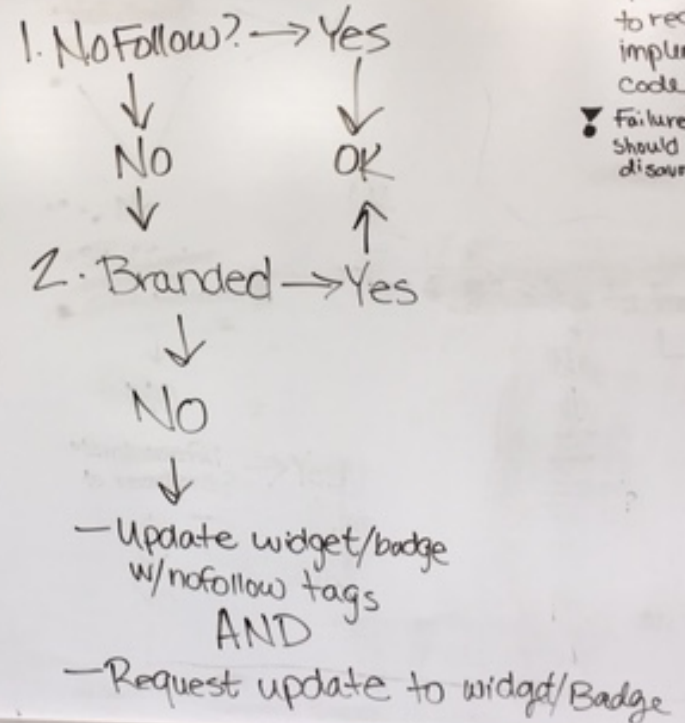 1. NoFollow? → Yes
NO OK
2. Branded → Yes
NO
- Update widget/badge
w/nofollow tags
AND
- Request update to widget/Badge
to rec
implem
code
Failure
should
disavo